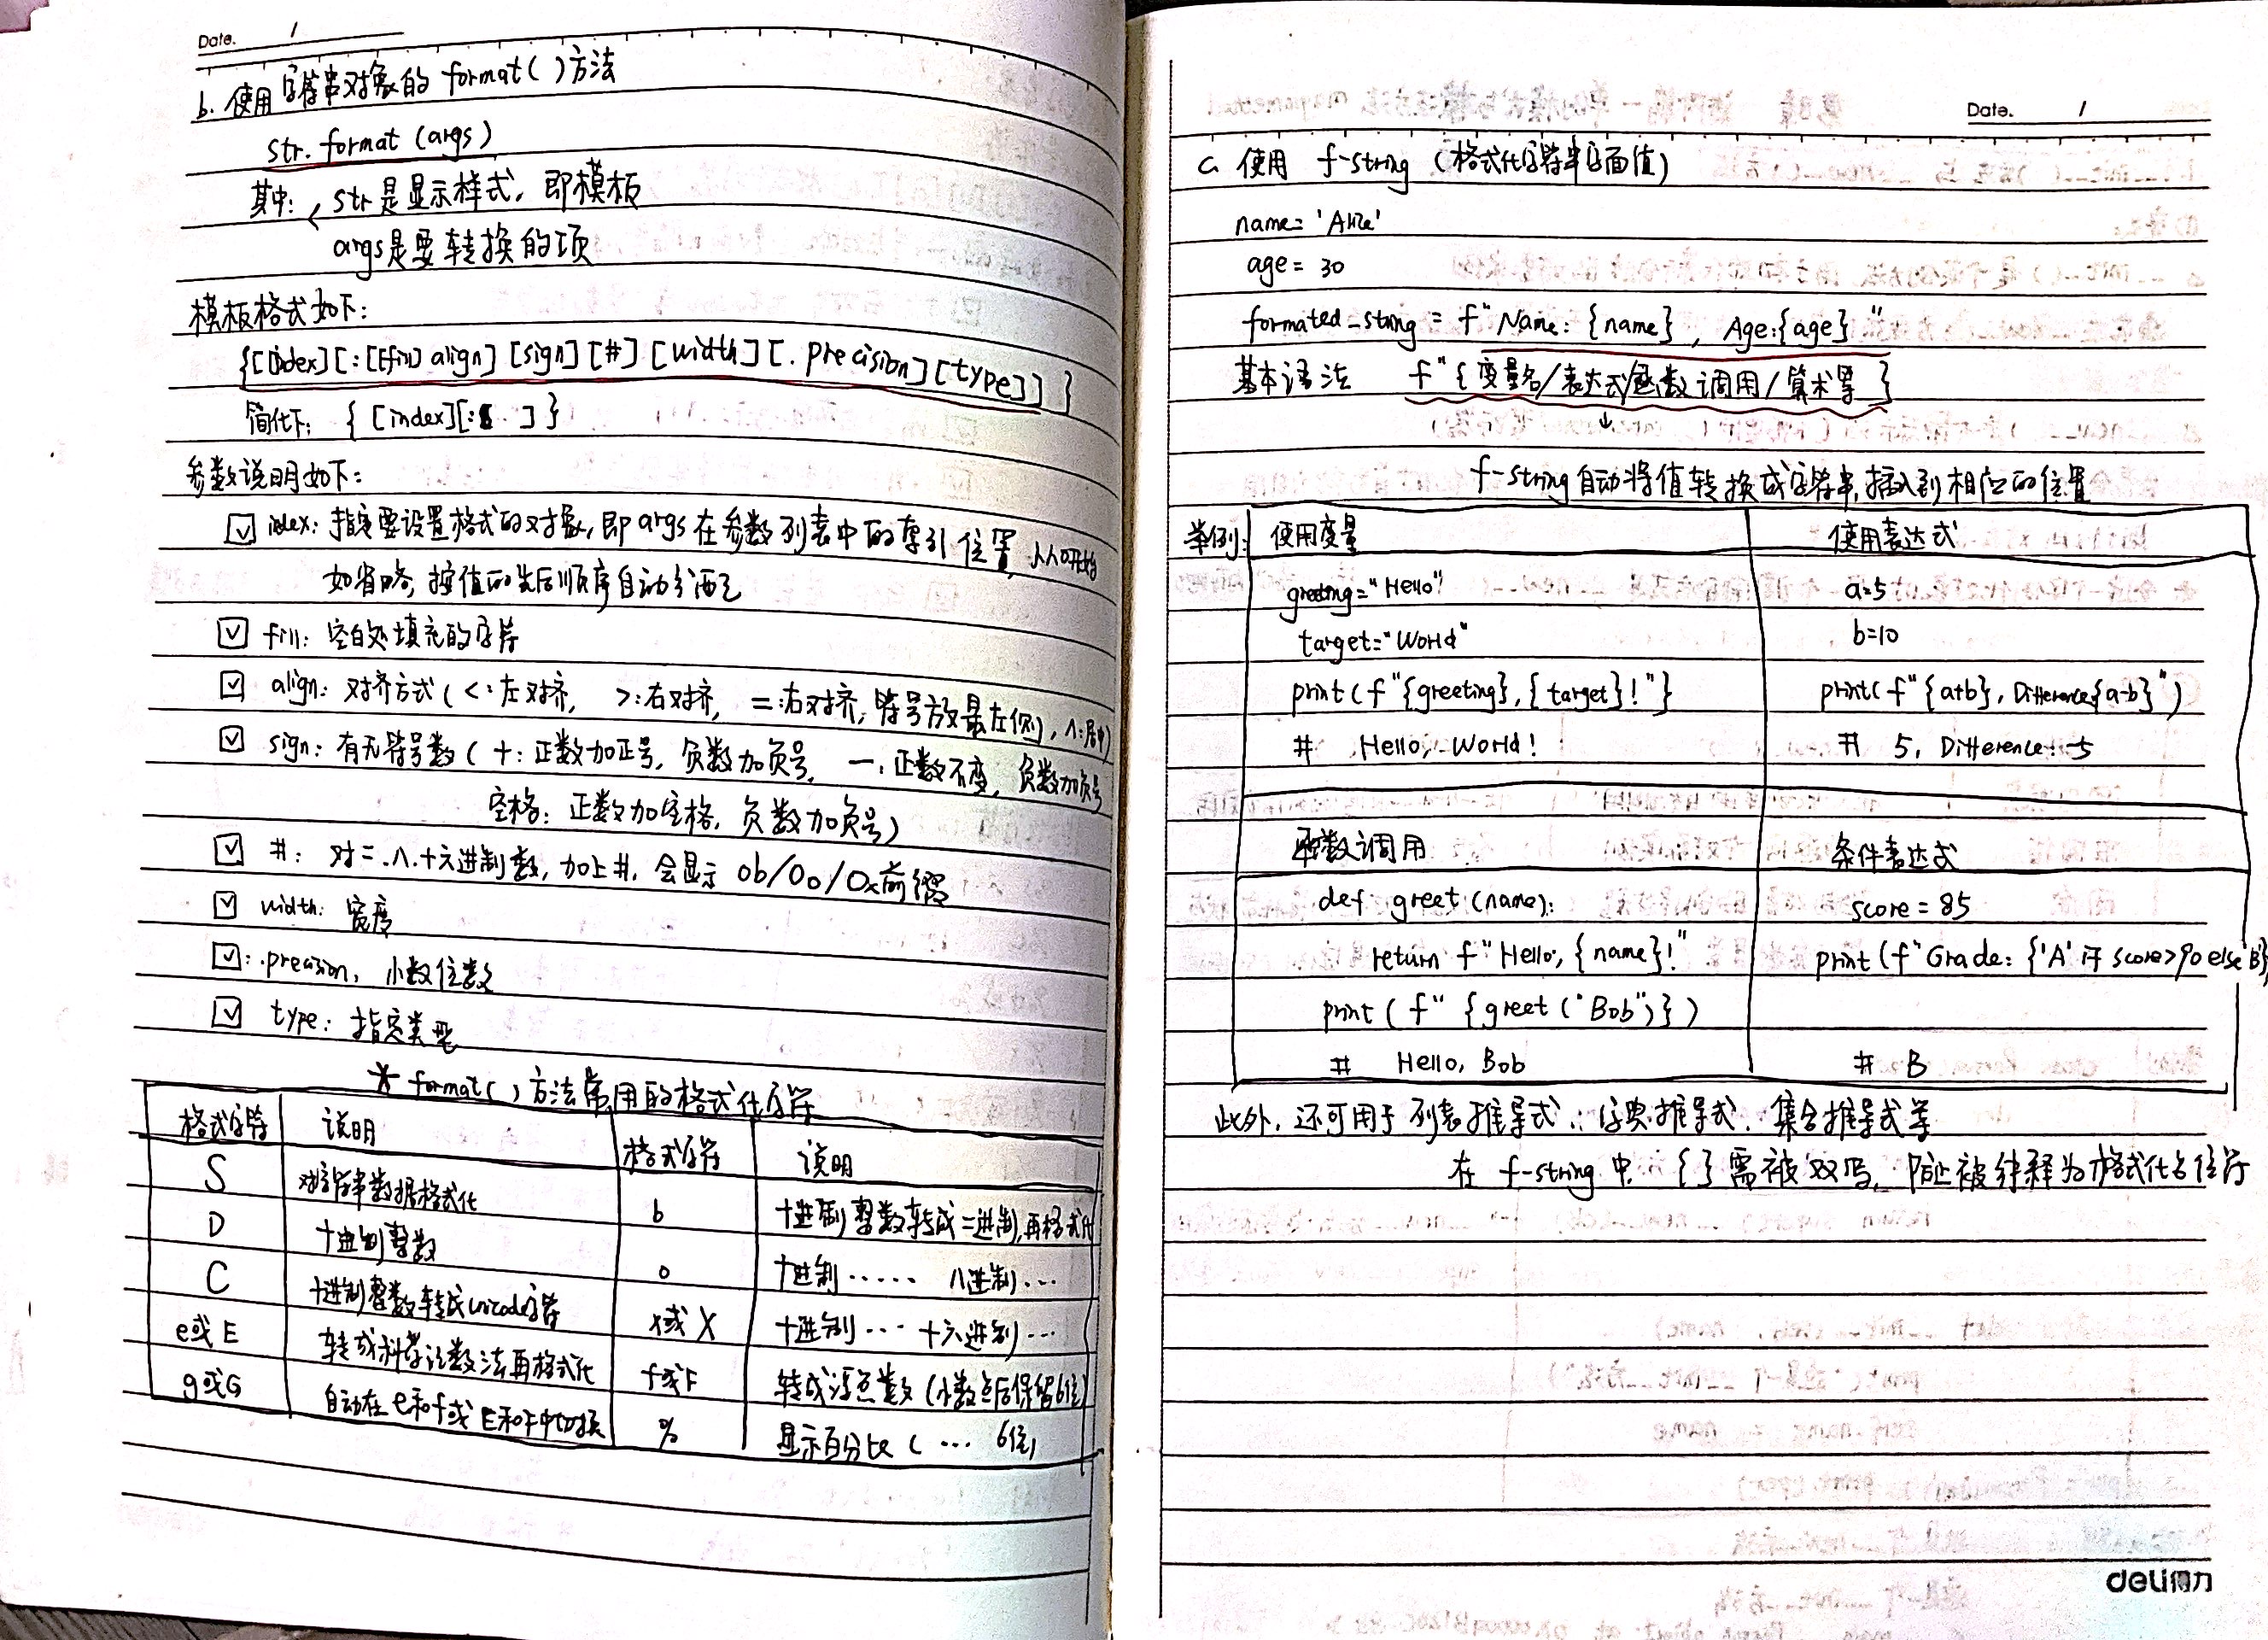 Date. /
b. 使用字符串对象的 format( )方法
str. format (args)
其中: str是显示样式, 即模板
args是要转换的项
模板格式如下:
{[index][:[[fill] align] [sign] [#] [width] [. precision] [type]] }
简化下: { [index][: ] }
参数说明如下:
index: 指定要设置格式的对象, 即args在参数列表中的索引位置, 从0开始
如省略, 按值的先后顺序自动分配
fill: 空白处填充的字符
align: 对齐方式 ( <:左对齐, >:右对齐, =:右对齐,符号放最左侧), ^:居中)
sign: 有无符号数 ( +: 正数加正号, 负数加负号, -: 正数不变, 负数加负号
空格: 正数加空格, 负数加负号)
#: 对二.八.十六进制数, 加上#, 会显示 0b/0o/0x前缀
width: 宽度
: .precision, 小数位数
type: 指定类型
* format( ) 方法常用的格式化字符
格式字符 说明 格式字符 说明
S 对字符串数据格式化 b 十进制整数转成二进制,再格式化
D 十进制整数 o 十进制 ····· 八进制 ···
C 十进制整数转成unicode字符 x或 X 十进制 ··· 十六进制 ···
e或 E 转成科学记数法再格式化 f或F 转成浮点数 (小数点后保留6位)
g或G 自动在 e和f或 E和F中切换 % 显示百分比 ( ··· 6位)
Date. /
c. 使用 f-string (格式化字符串字面值)
name= 'Alice'
age= 30
formated_string = f"Name: {name} , Age:{age} "
基本语法 f"{ 变量名/表达式/函数调用/算术等 }
↓
f-string自动将值转换成字符串,插入到相应的位置
举例: 使用变量 使用表达式
greeting="Hello" a=5
target="World" b=10
print(f"{greeting},{target}!"} print(f"{a+b}, Difference{a-b}")
# Hello, World! # 5, Difference: -5
函数调用 条件表达式
def greet (name): score = 85
return f"Hello, {name}!" print (f"Grade: {'A' if score>90 else'B'}
print ( f" {greet ("Bob")} )
# Hello, Bob # B
此外, 还可用于列表推导式、字典推导式、集合推导式等
在 f-string 中, { } 需被双写, 防止被解释为格式化占位符
deli得力